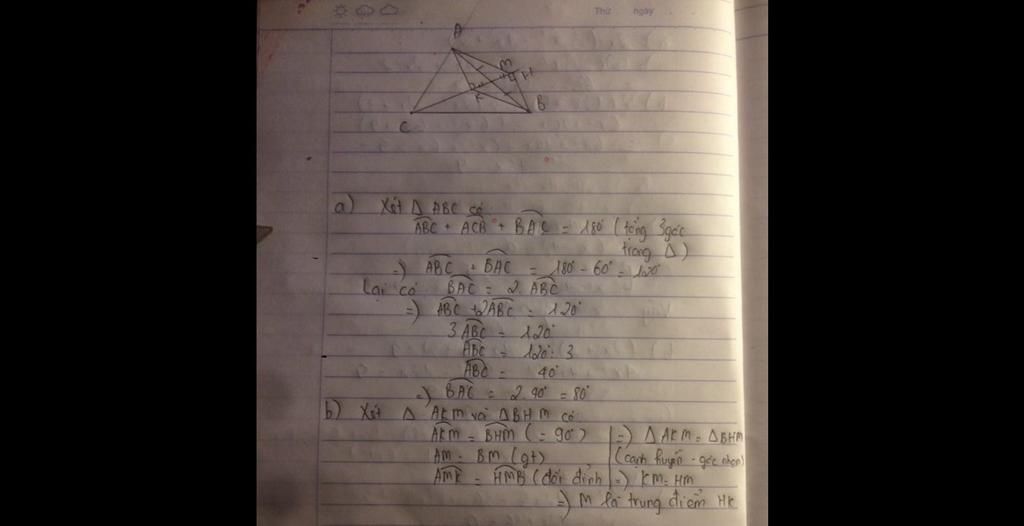 Thứ ngày
A
M
H
K
B
C
a) Xét Δ ABC có
ABC + ACB + BAC = 180° (tổng 3 góc
trong Δ)
=) ABC + BAC = 180° - 60° = 120°
Lại có BAC = 2. ABC
=) ABC + 2ABC = 120°
3 ABC = 120°
ABC = 120: 3
ABC = 40°
=) BAC = 2 40° = 80°
b) Xét Δ AKM và ΔBHM có
AKM = BHM (= 90°) =) Δ AKM = ΔBHM
AM = BM (gt) (cạnh huyền - góc nhọn)
AMK = HMB (đối đỉnh =) KM = HM
=) M là trung điểm HK